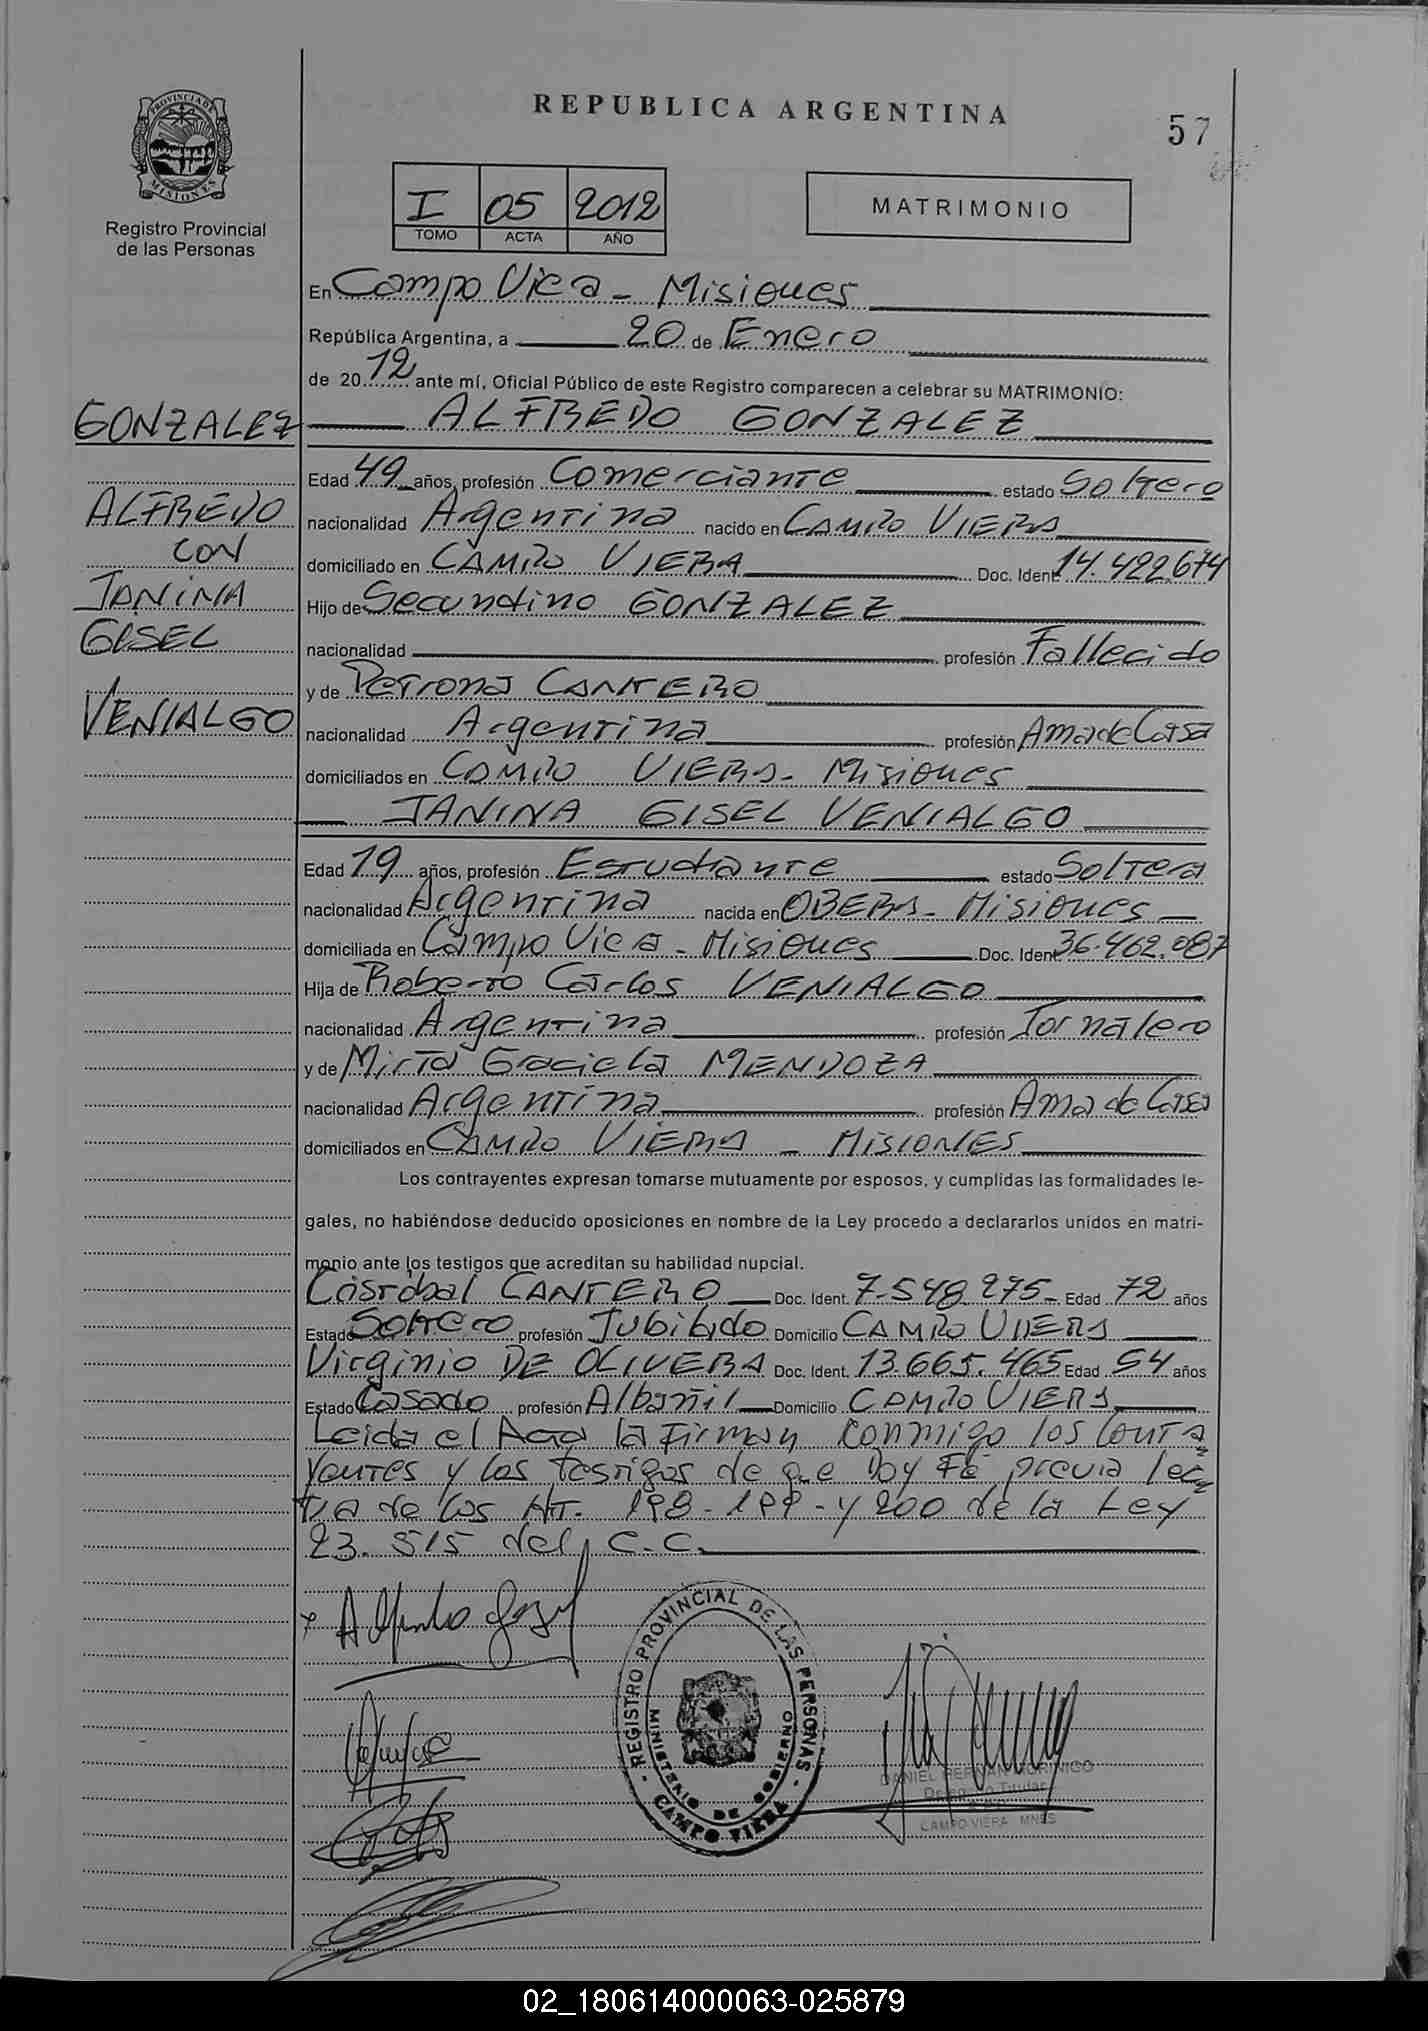 REPUBLICA ARGENTINA
57
PROVINCIA DE
MISIONES
Registro Provincial
de las Personas
I 05 2012
TOMO ACTA AÑO
MATRIMONIO
En Campo Viera - Misiones
República Argentina, a 20 de Enero
de 2012 ante mí, Oficial Público de este Registro comparecen a celebrar su MATRIMONIO:
GONZALEZ
ALFREDO
CON
JANINA
GISEL
VENIALGO
ALFREDO GONZALEZ
Edad 49 años, profesión Comerciante estado Soltero
nacionalidad Argentina nacido en CAMPO VIERA
domiciliado en CAMPO VIERA Doc. Ident. 14.422.674
Hijo de Secundino GONZALEZ
nacionalidad profesión Fallecido
y de Petrona CANTERO
nacionalidad Argentina profesión Ama de Casa
domiciliados en CAMPO VIERA - Misiones
JANINA GISEL VENIALGO
Edad 19 años, profesión Estudiante estado Soltera
nacionalidad Argentina nacida en OBERA - Misiones
domiciliada en Campo Viera - Misiones Doc. Ident. 36.462.087
Hija de Roberto Carlos VENIALGO
nacionalidad Argentina profesión Jornalero
y de Mirta Graciela MENDOZA
nacionalidad Argentina profesión Ama de Casa
domiciliados en CAMPO VIERA - MISIONES
Los contrayentes expresan tomarse mutuamente por esposos, y cumplidas las formalidades le-
gales, no habiéndose deducido oposiciones en nombre de la Ley procedo a declararlos unidos en matri-
monio ante los testigos que acreditan su habilidad nupcial.
Cristóbal CANTERO Doc. Ident. 7.548.275 - Edad 72 años
Estado Soltero profesión Jubilado Domicilio CAMPO VIERA
Virginio DE OLIVERA Doc. Ident. 13.665.465 Edad 54 años
Estado Casado profesión Albañil Domicilio CAMPO VIERA
Leida el Acta la Firman conmigo los contra
yentes y los testigos de que Doy Fé previa lec
tura de los Art. 198 - 199 - y 200 de la Ley
23.515 del C.C.
Alfredo
REGISTRO PROVINCIAL DE LAS PERSONAS
MINISTERIO DE GOBIERNO
CAMPO VIERA
DANIEL HERNAN
Delegado Titular
CAMPO VIERA MNES
02_180614000063-025879